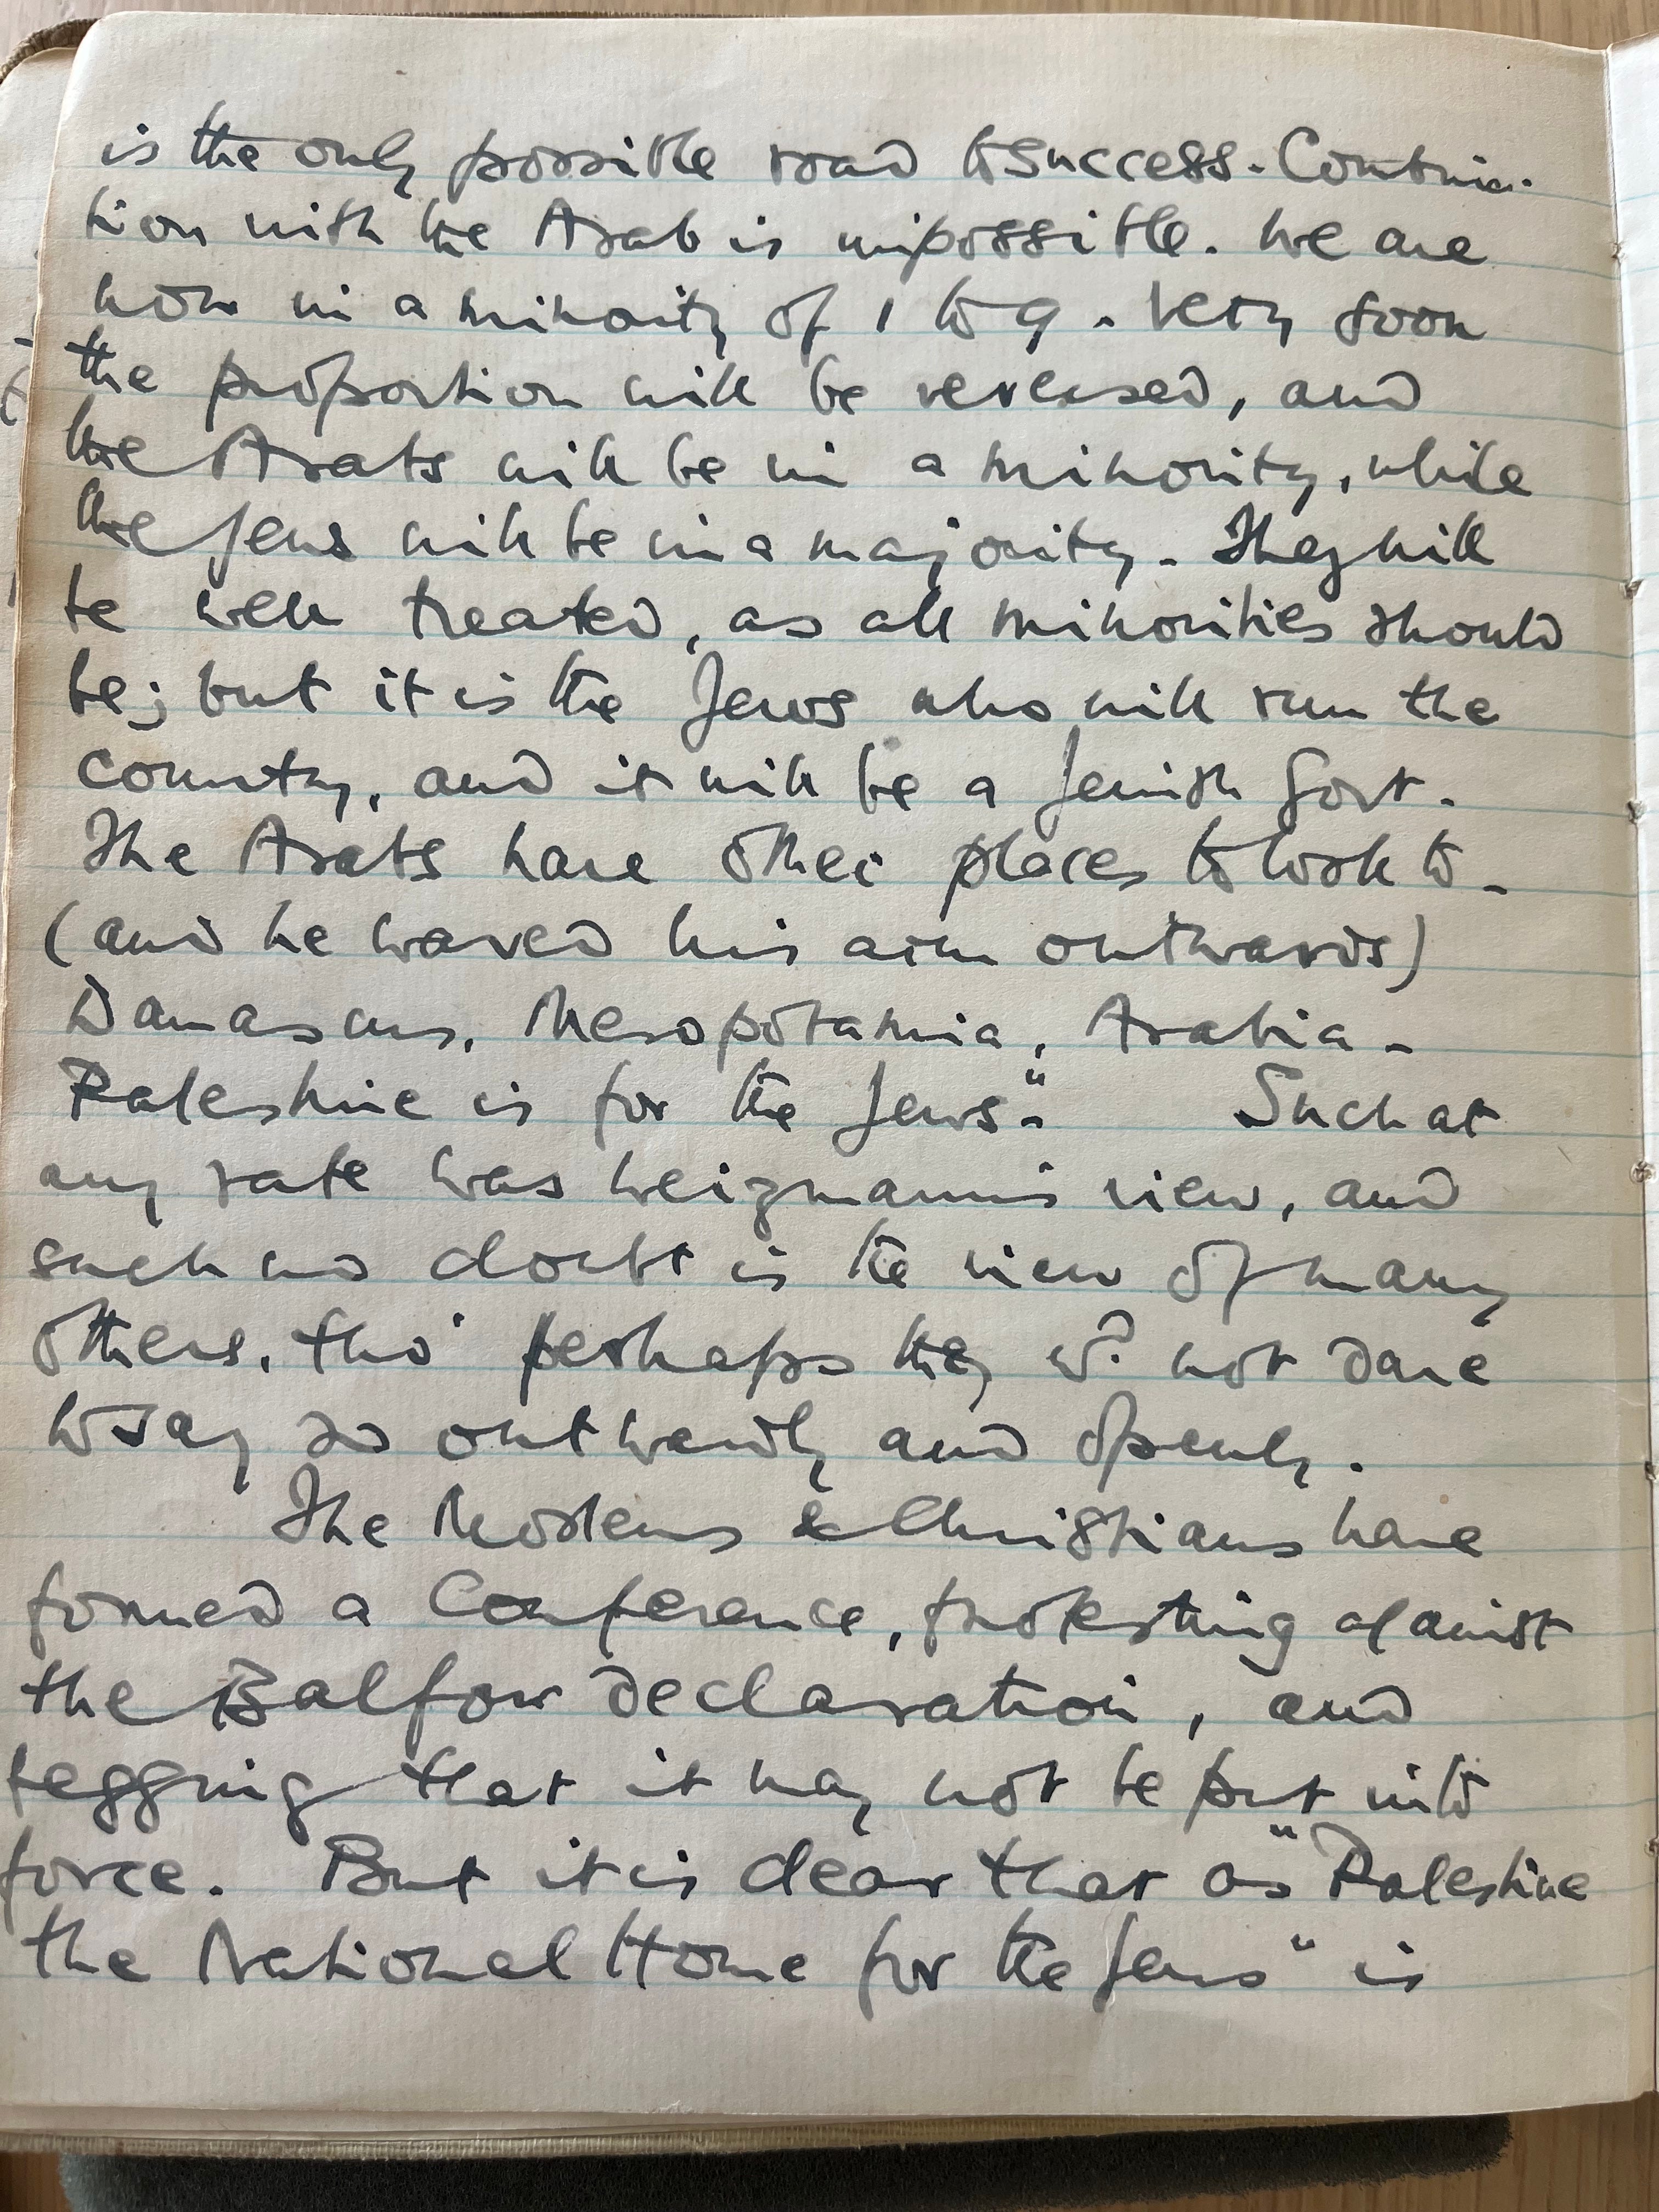 is the only possible road to success. Combina-
tion with the Arab is impossible. We are
now in a minority of 1 to 9. Very soon
the proportion will be reversed, and
the Arabs will be in a minority, while
the Jews will be in a majority. They will
be well treated, as all minorities should
be; but it is the Jews who will run the
country, and it will be a Jewish Govt.
The Arabs have other places to look to -
(and he waved his arm outwards)
Damascus, Mesopotamia, Arabia -
Palestine is for the Jews". Such at
any rate was Weizmann's view, and
such no doubt is the view of many
others, tho' perhaps they wd. not dare
to say so outwardly and openly.
The Moslems & Christians have
formed a Conference, protesting against
the Balfour declaration, and
begging that it may not be put into
force. But it is clear that as "Palestine
the National Home for the Jews" is